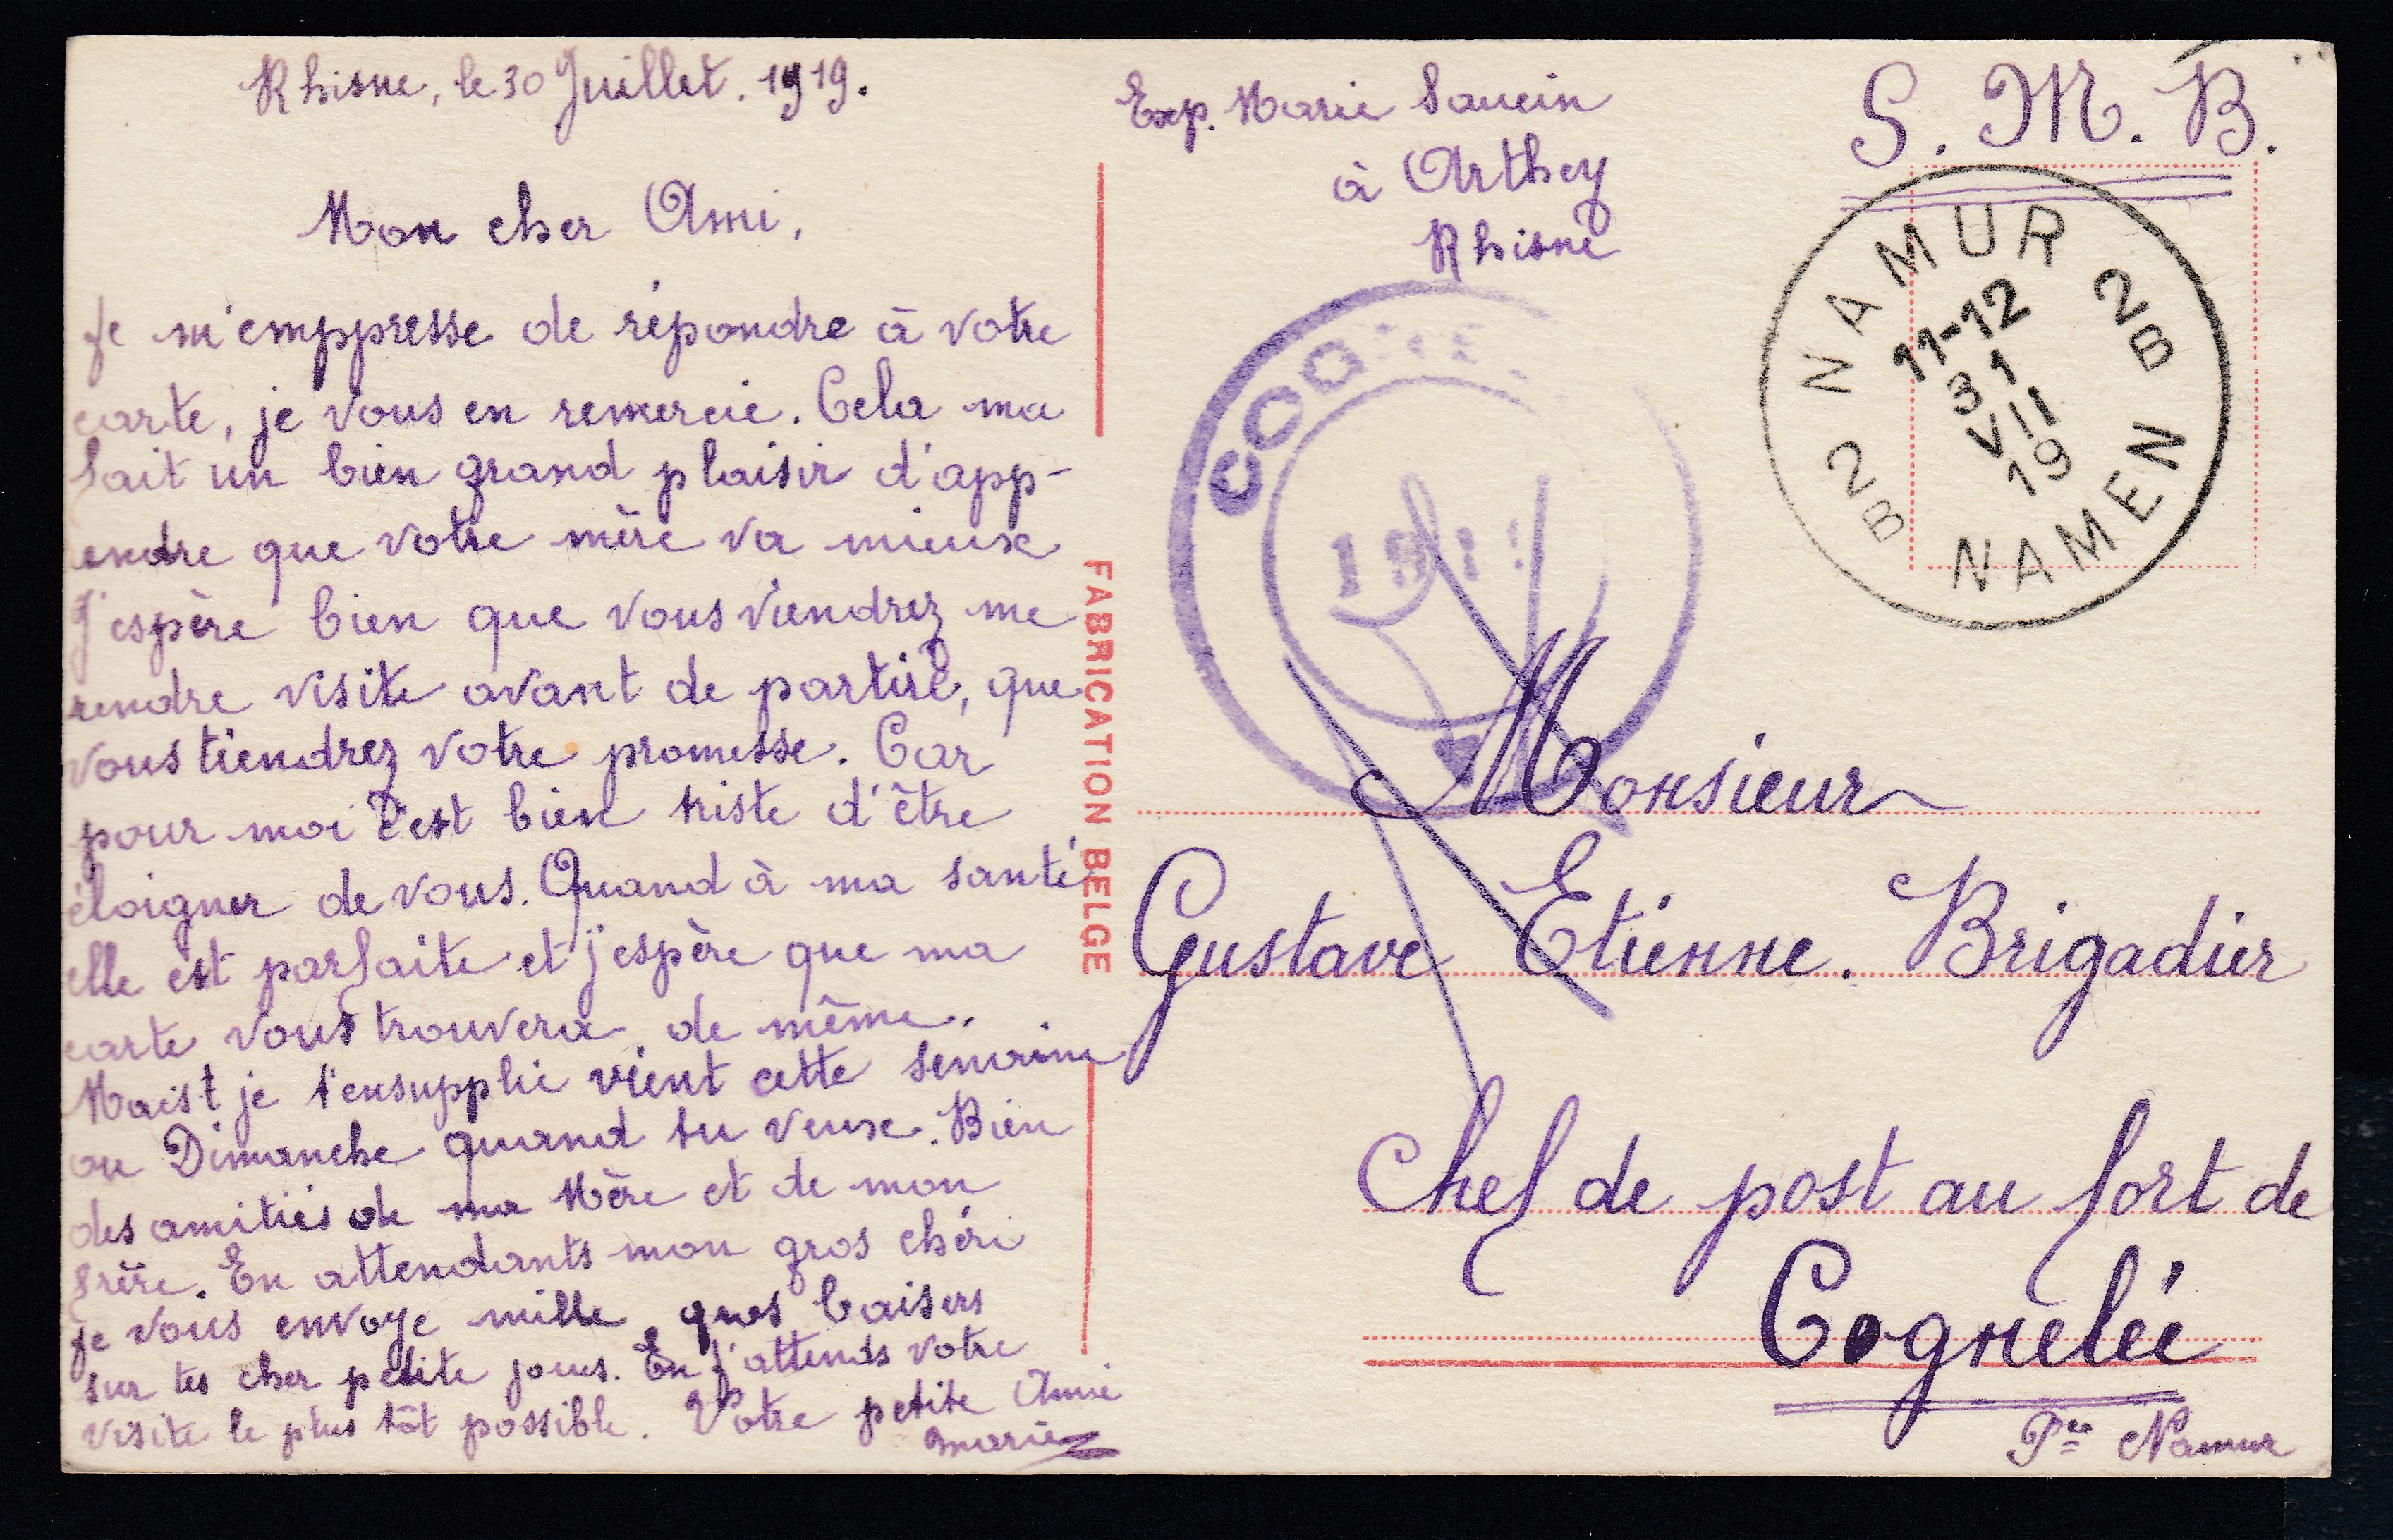 Rhisne, le 30 Juillet. 1919.
Mon cher Ami,
Je m'emppresse de répondre à votre
carte, je vous en remercie. Cela ma
fait un bien grand plaisir d'app-
endre que votre mère va mieux
J'espère bien que vous viendrez me
rendre visite avant de partire, que
vous tiendrez votre promesse. Car
pour moi c'est bien triste d'être
éloigner de vous. Quand à ma santé
elle est parfaite et j'espère que ma
carte vous trouvera de même.
Maist je t'ensupplie vient cette semaine
ou Dimanche quand tu veux. Bien
des amitiés de ma Mère et de mon
frère. En attendants mon gros chéri
je vous envoye mille gros baisers
sur tes cher petite joues. En j'attends votre
visite le plus tôt possible. Votre petite Amie
Marie
FABRICATION BELGE
Exp. Marie Saucin
à Arthey
Rhisne
S. M. B.
NAMUR 2B
11-12
31
VII
19
2B NAMEN
COG
191
Monsieur
Gustave Etienne. Brigadier
Chef de post au fort de
Cognelée
Pce Namur